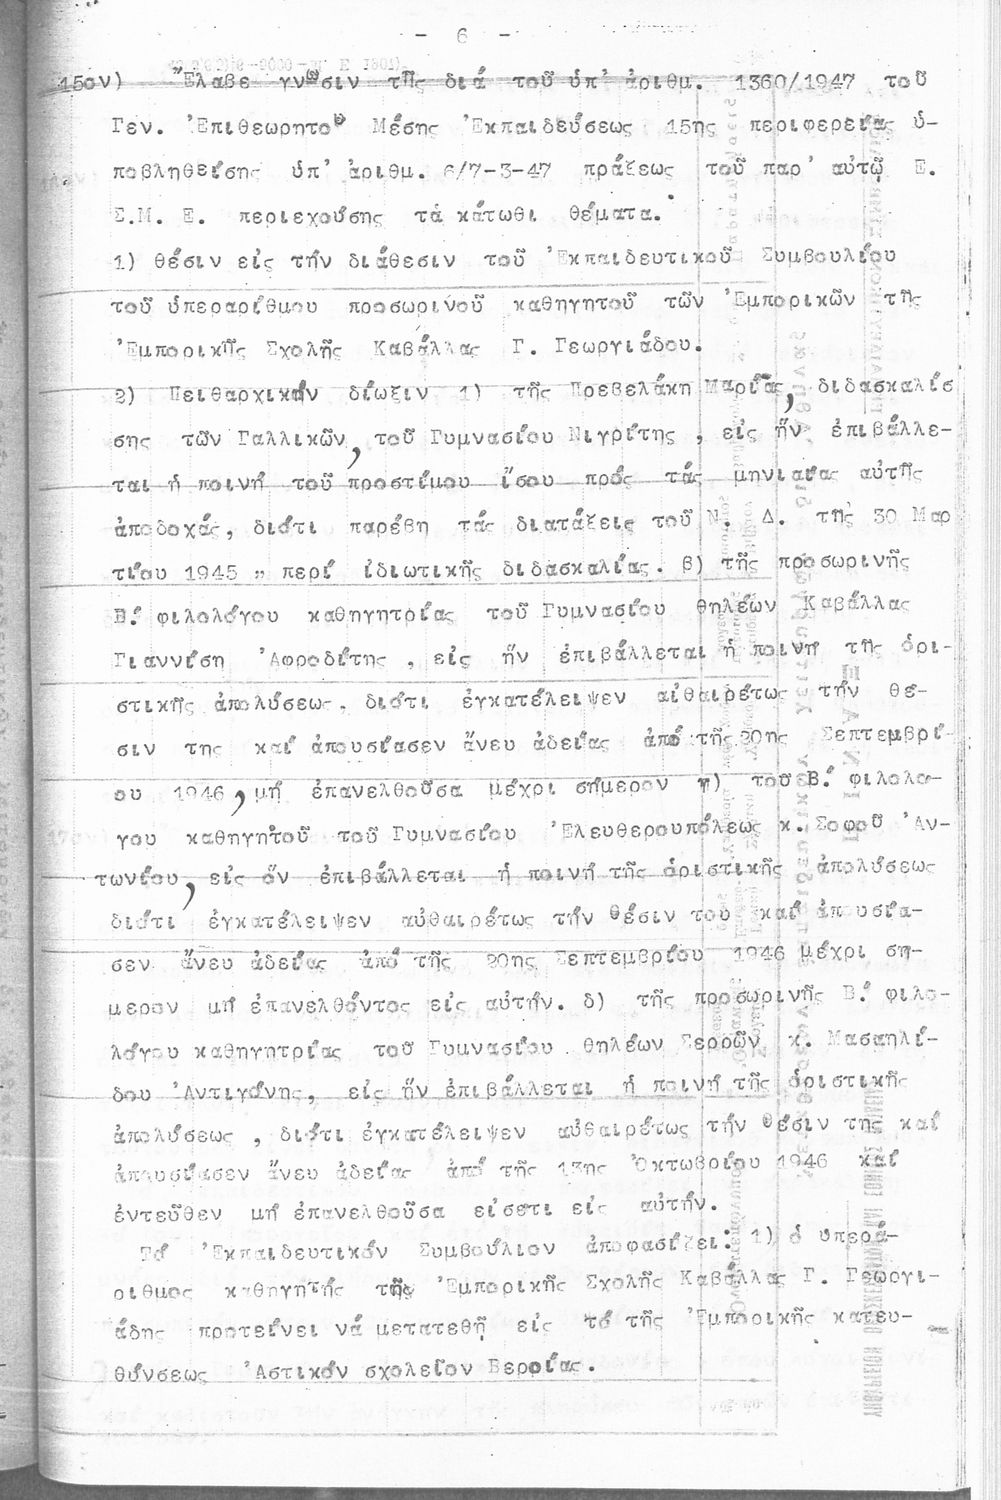 - 6 -
15ον) Ἔλαβε γνῶσιν τῆς διά τοῦ ὑπ' ἀριθμ. 1360/1947 τοῦ
Γεν. Ἐπιθεωρητοῦ Μέσης Ἐκπαιδεύσεως 15ης περιφερείας ὑ-
ποβληθείσης ὑπ' ἀριθμ. 6/7-3-47 πράξεως τοῦ παρ' αὐτῷ Ε.
Σ.Μ. Ε. περιεχούσης τά κάτωθι θέματα.
1) θέσιν εἰς τήν διάθεσιν τοῦ Ἐκπαιδευτικοῦ Συμβουλίου
τοῦ ὑπεραρίθμου προσωρινοῦ καθηγητοῦ τῶν Ἐμπορικῶν τῆς
Ἐμπορικῆς Σχολῆς Καβάλλας Γ. Γεωργιάδου.
2) Πειθαρχικήν δίωξιν 1) τῆς Πρεβελάκη Μαρίας, διδασκαλίσ
σης τῶν Γαλλικῶν, τοῦ Γυμνασίου Νιγρίτης , εἰς ἥν ἐπιβάλλε-
ται ἡ ποινή τοῦ προστίμου ἴσου πρός τάς μηνιαίας αὐτῆς
ἀποδοχάς, διότι παρέβη τάς διατάξεις τοῦ Ν. Δ. τῆς 30 Μαρ
τίου 1945 " περί ἰδιωτικῆς διδασκαλίας. β) τῆς προσωρινῆς
Β.' φιλολόγου καθηγητρίας τοῦ Γυμνασίου θηλέων Καβάλλας
Γιαννίση Ἀφροδίτης , εἰς ἥν ἐπιβάλλεται ἡ ποινή τῆς ὁρι-
στικῆς ἀπολύσεως. διότι ἐγκατέλειψεν αὐθαιρέτως τήν θέ-
σιν της καί ἀπουσίασεν ἄνευ ἀδείας ἀπό τῆς 20ης Σεπτεμβρί-
ου 1946, μή ἐπανελθοῦσα μέχρι σήμερον γ) τοῦ Β.' φιλολό-
γου καθηγητοῦ τοῦ Γυμνασίου Ἐλευθερουπόλεως κ. Σοφοῦ Ἀν-
τωνίου, εἰς ὅν ἐπιβάλλεται ἡ ποινή τῆς ὁριστικῆς ἀπολύσεως
διότι ἐγκατέλειψεν αὐθαιρέτως τήν θέσιν του καί ἀπουσία-
σεν ἄνευ ἀδείας ἀπό τῆς 20ης Σεπτεμβρίου 1946 μέχρι σή-
μερον μή ἐπανελθόντος εἰς αὐτήν. δ) τῆς προσωρινῆς Β.' φιλο-
λόγου καθηγητρίας τοῦ Γυμνασίου θηλέων Σερρῶν κ. Μασαηλί-
δου Ἀντιγόνης, εἰς ἥν ἐπιβάλλεται ἡ ποινή τῆς ὁριστικῆς
ἀπολύσεως , διότι ἐγκατέλειψεν αὐθαιρέτως τήν θέσιν της καί
ἀπουσίασεν ἄνευ ἀδείας ἀπό τῆς 13ης Ὀκτωβρίου 1946 καί
ἐντεῦθεν μή ἐπανελθοῦσα εἰσέτι εἰς αὐτήν.
Τό Ἐκπαιδευτικόν Συμβούλιον ἀποφασίζει: 1) ὁ ὑπερά-
ριθμος καθηγητής τῆς Ἐμπορικῆς Σχολῆς Καβάλλας Γ. Γεωργι-
άδης προτείνει νά μετατεθῇ εἰς τό τῆς Ἐμπορικῆς κατευ-
θύνσεως Ἀστικόν σχολεῖον Βεροίας.